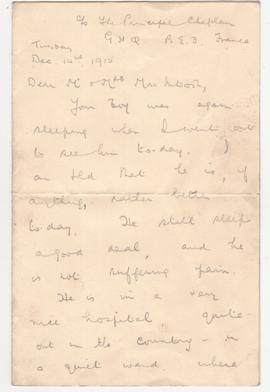 c/o The Principal Chaplain
G.H.Q. B.E.F. France
Tuesday
Dec. 14th, 1915
Dear Mr & Mrs MacIntosh,
Your boy was again
sleeping when I went out
to see him to-day. I
am told that he is, if
anything, rather better
to-day. He still sleeps
a good deal, and he
is not suffering pain.
He is in a very
nice hospital quite
out in the country - in
a quiet ward, where